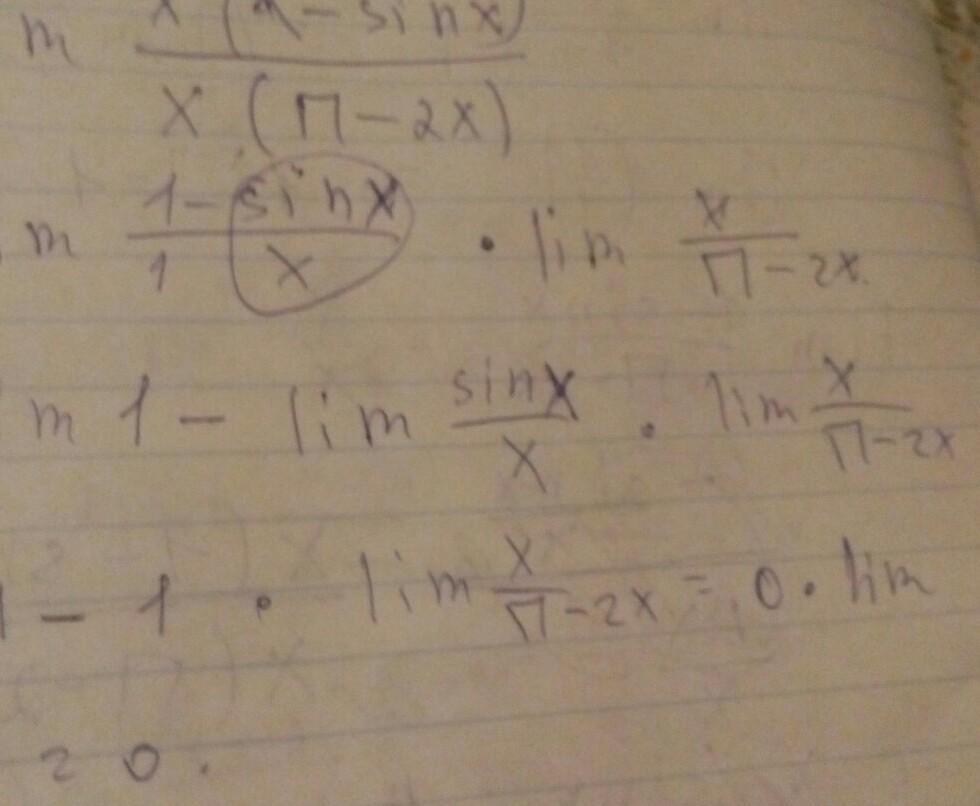 m x(1-sinx)
x(π-2x)
m 1-sinx/1 x · lim x/π-2x
m 1 - lim sinx/x · lim x/π-2x
1 - 1 · lim x/π-2x = 0 · lim
= 0.